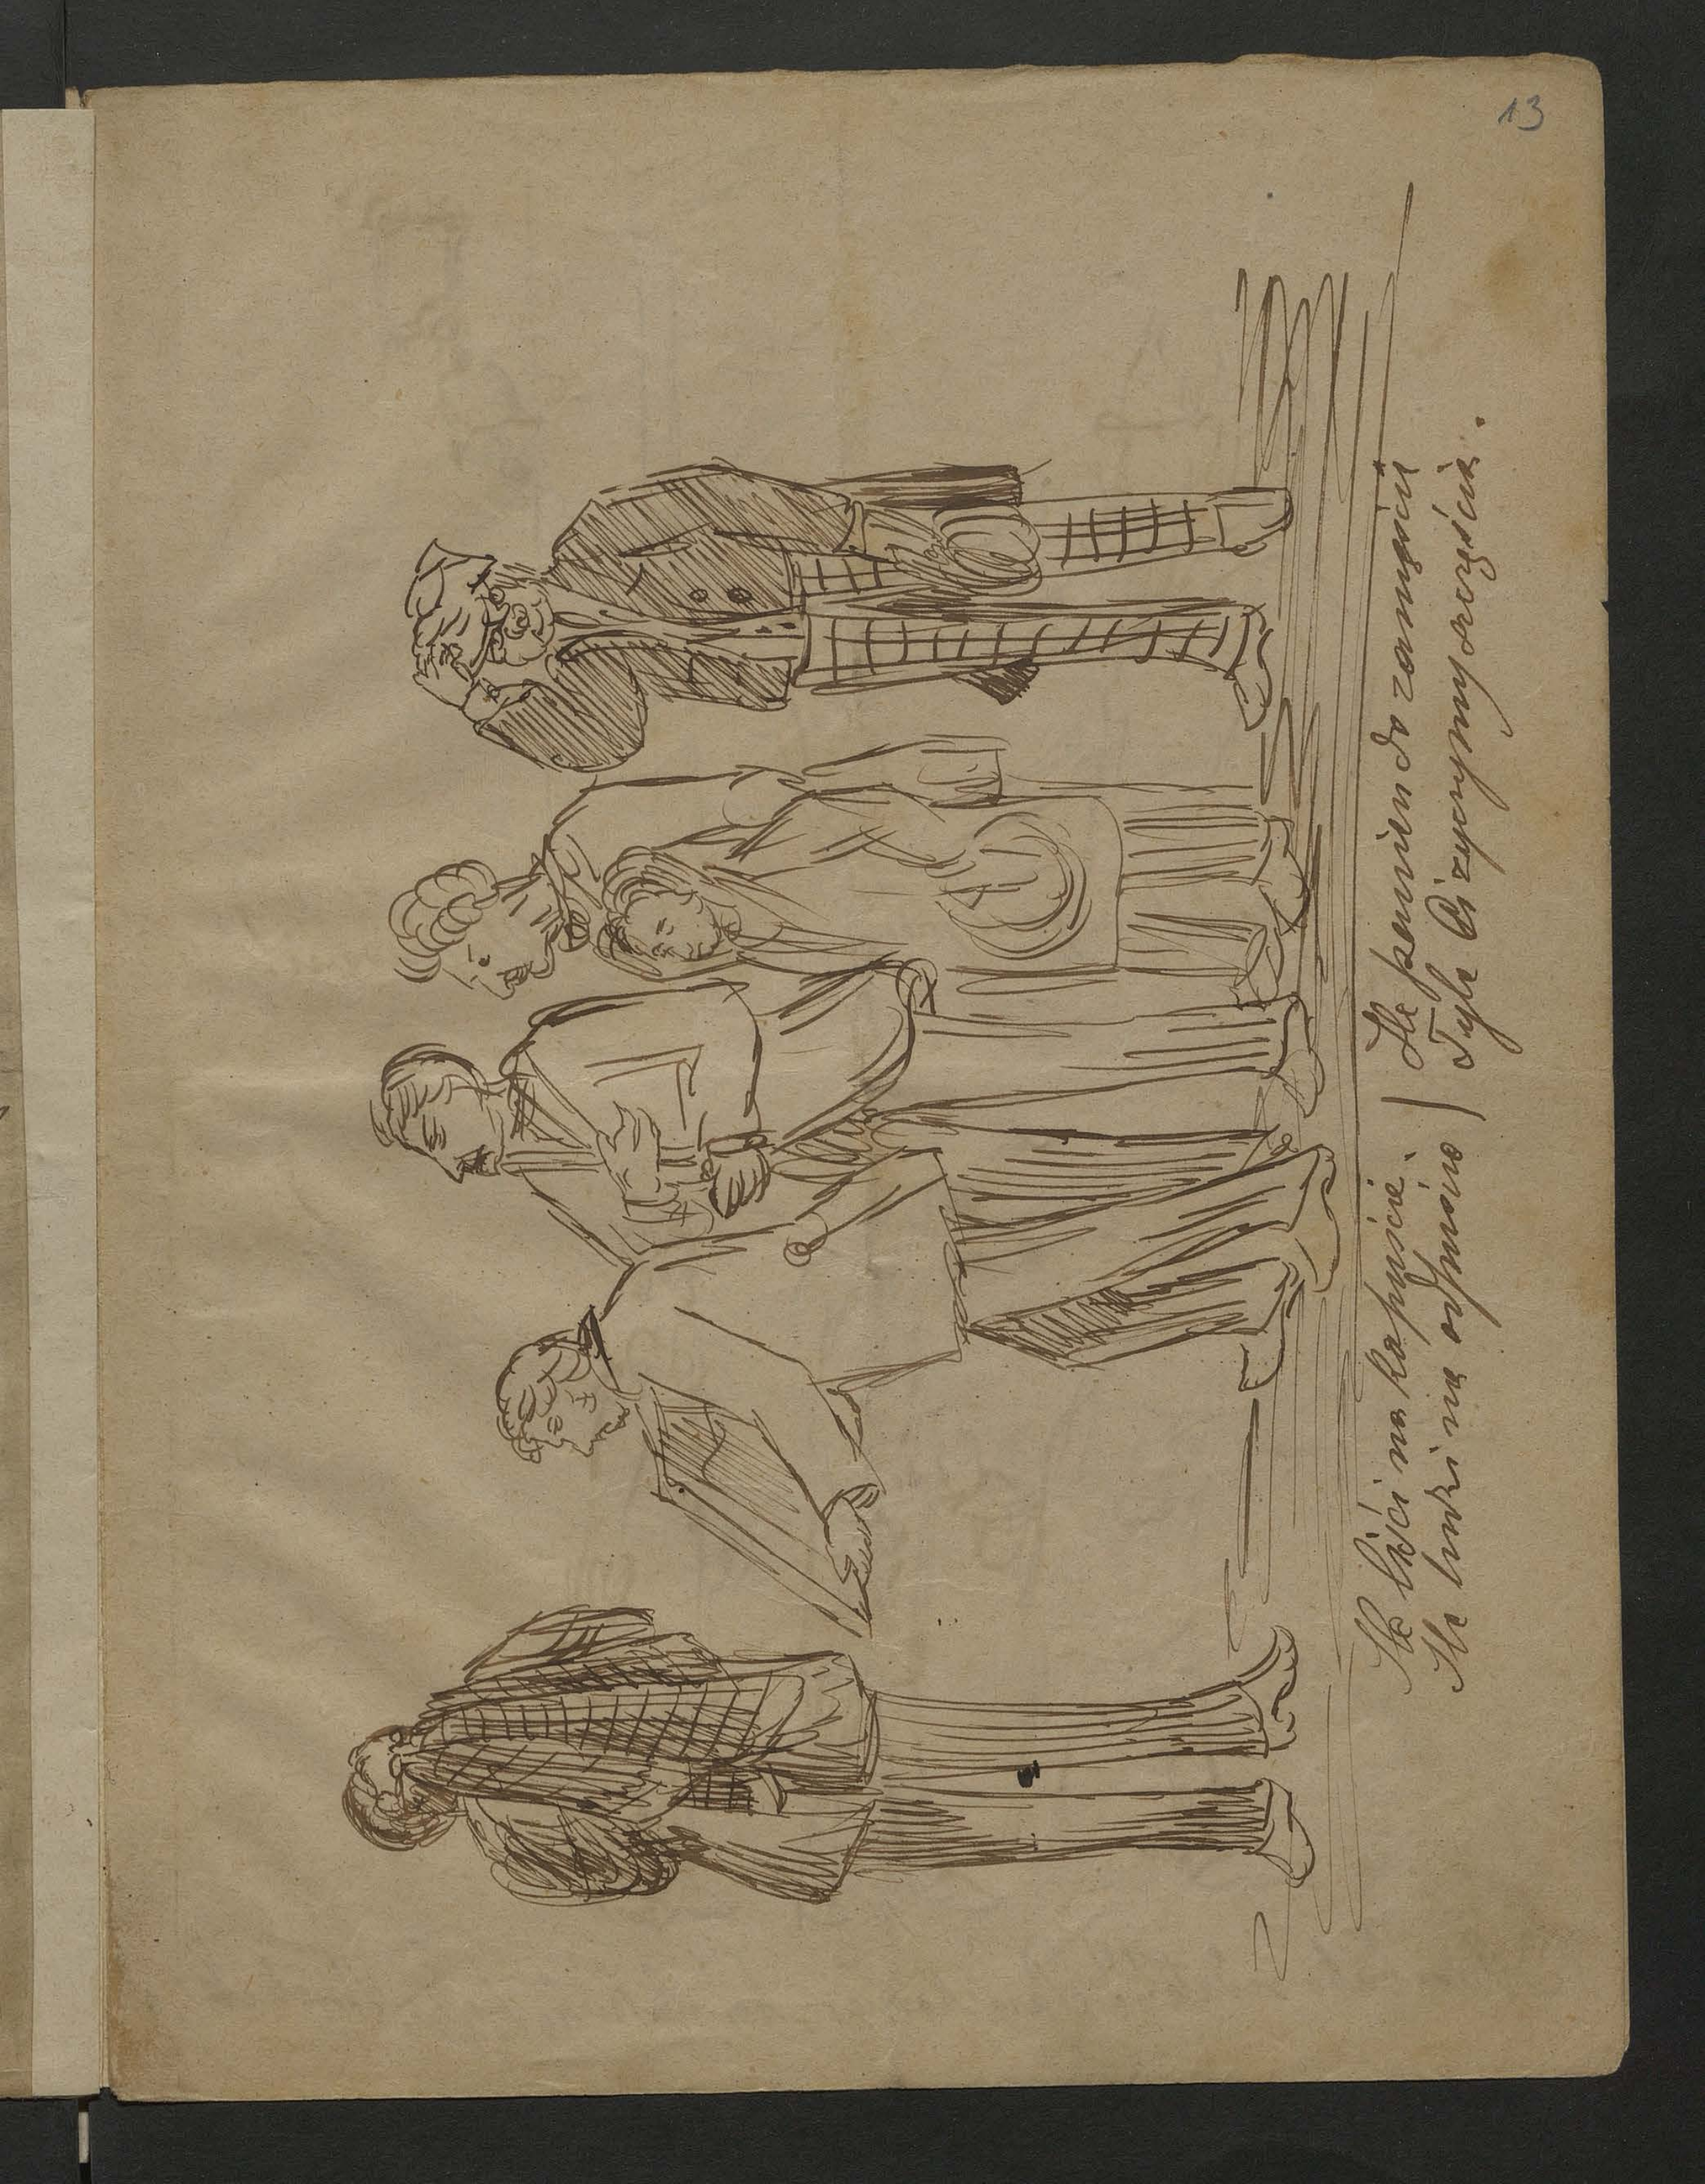 13
Ile liści na kapuście
Ile ludzi na odpuście
Ile panien do zamęścia
Tyle Ci życzymy szczęścia.